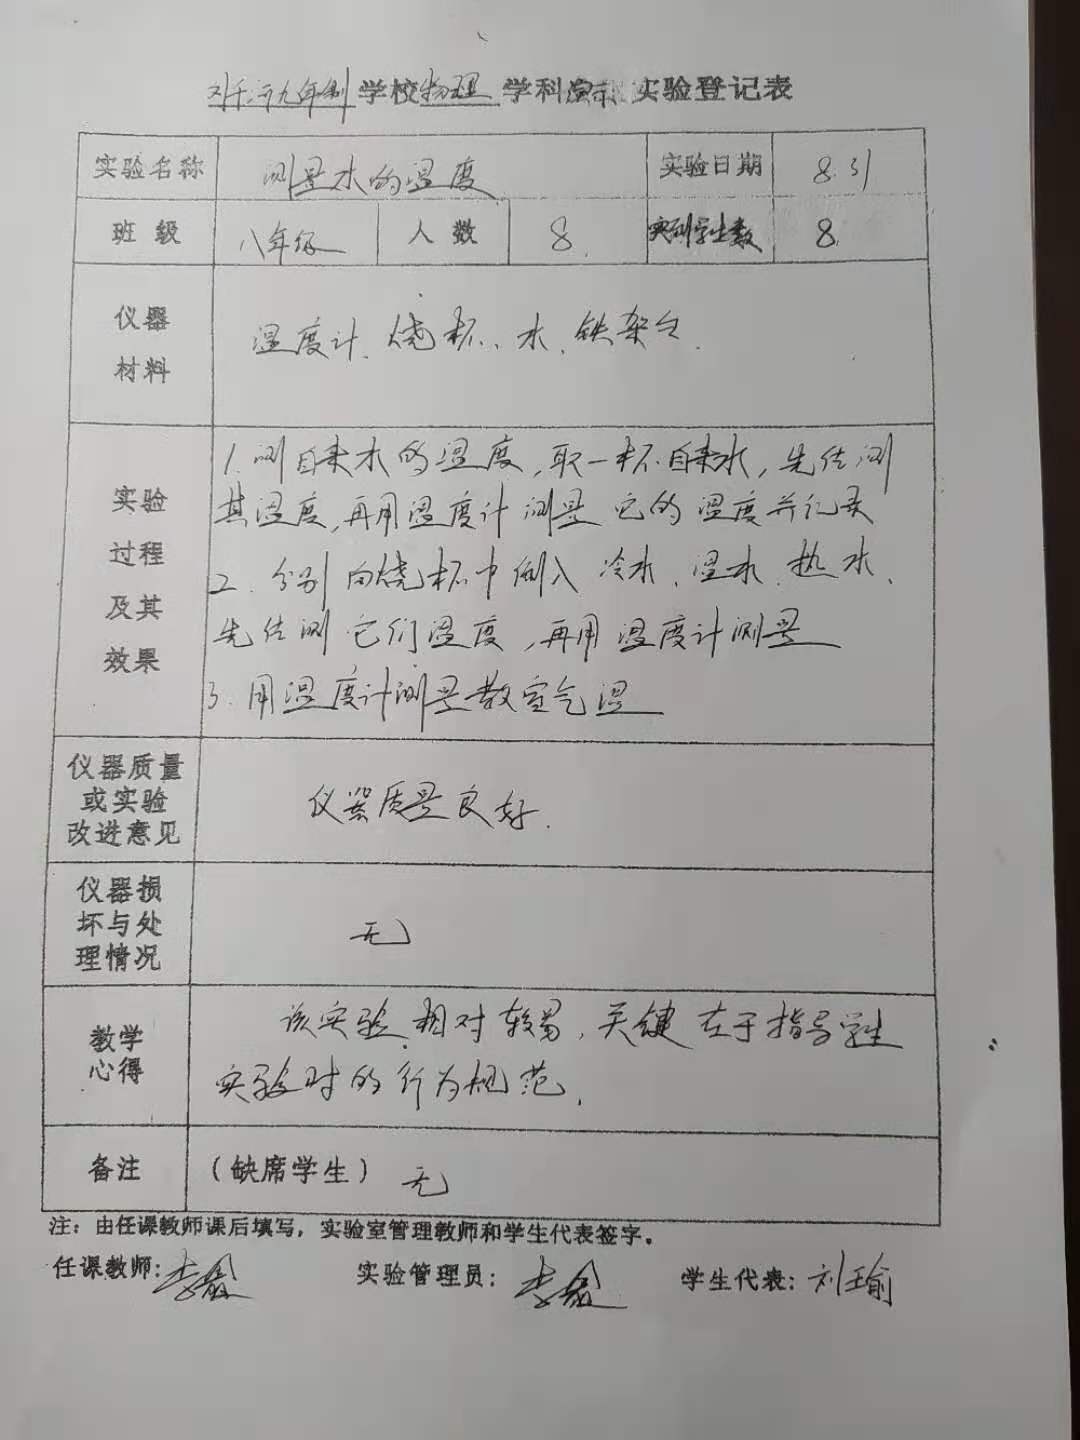 九年制学校物理 学科 实验登记表
实验名称 测量水的温度 实验日期 8.31
班 级 八年级 人 数 8. 实到学生数 8.
仪器
材料
温度计、烧杯、水、铁架台.
实验
过程
及其
效果
1.测自来水的温度,取一杯自来水,先估测
其温度,再用温度计测量它的温度并记录
2.分别向烧杯中倒入冷水、温水、热水、
先估测它们温度,再用温度计测量
3.用温度计测量教室气温
仪器质量
或实验
改进意见
仪器质量良好.
仪器损
坏与处
理情况
无
教学
心得
该实验相对较易,关键在于指导学生
实验时的行为规范.
备注 (缺席学生) 无
注:由任课教师课后填写,实验室管理教师和学生代表签字。
任课教师:李 实验管理员:李 学生代表:刘玉瑜